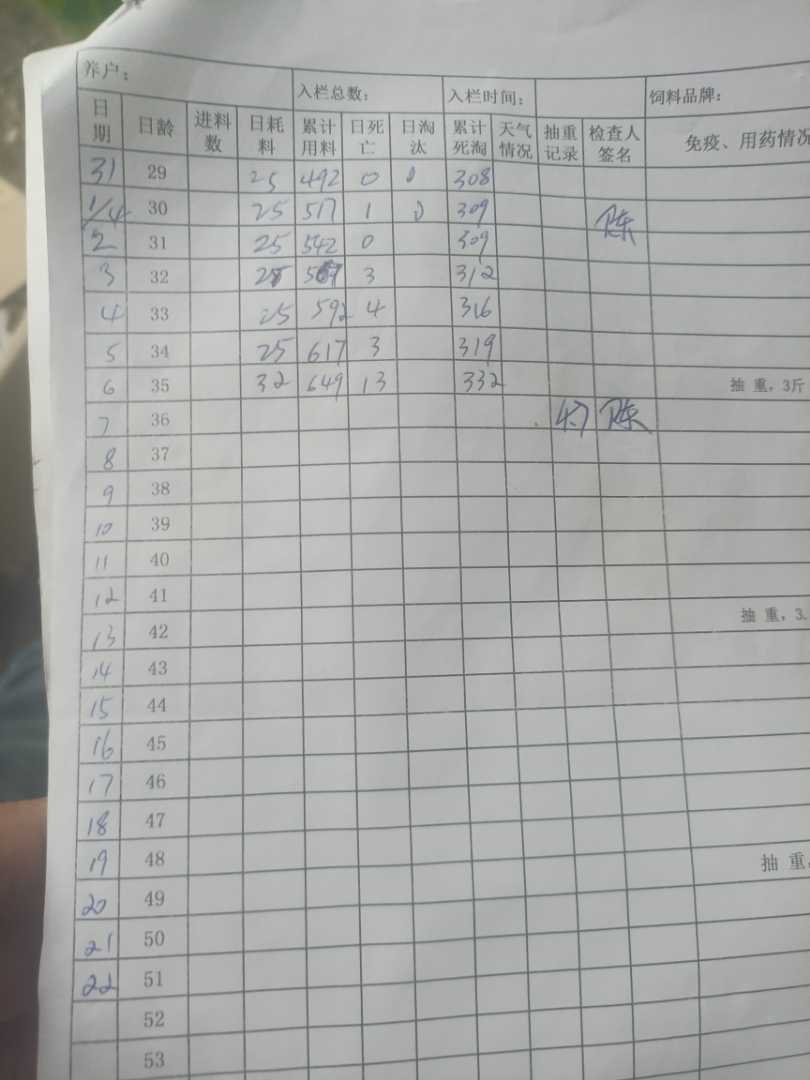 养户：
入栏总数： 入栏时间： 饲料品牌：
日期 日龄 进料数 日耗料 累计用料 日死亡 日淘汰 累计死淘 天气情况 抽重记录 检查人签名 免疫、用药情况
31 29 25 492 0 0 308
1/4 30 25 517 1 0 309 陈
2 31 25 542 0 309
3 32 25 567 3 312
4 33 25 592 4 316
5 34 25 617 3 319
6 35 32 649 13 332 抽 重，3斤
7 36 陈
8 37
9 38
10 39
11 40
12 41
13 42 抽 重，3.
14 43
15 44
16 45
17 46
18 47
19 48 抽 重，
20 49
21 50
22 51
52
53